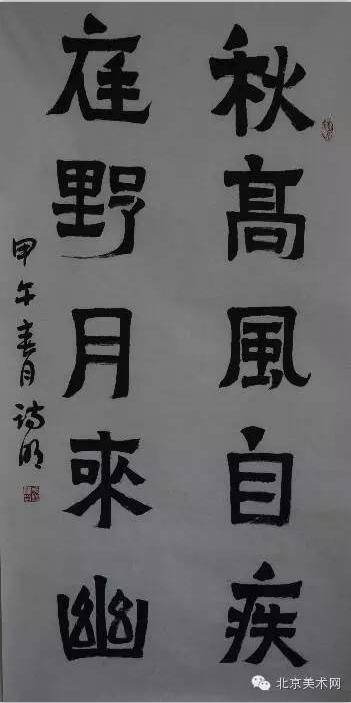 秋高風自疾
庭野月來幽
甲午春月詩明
北京美术网